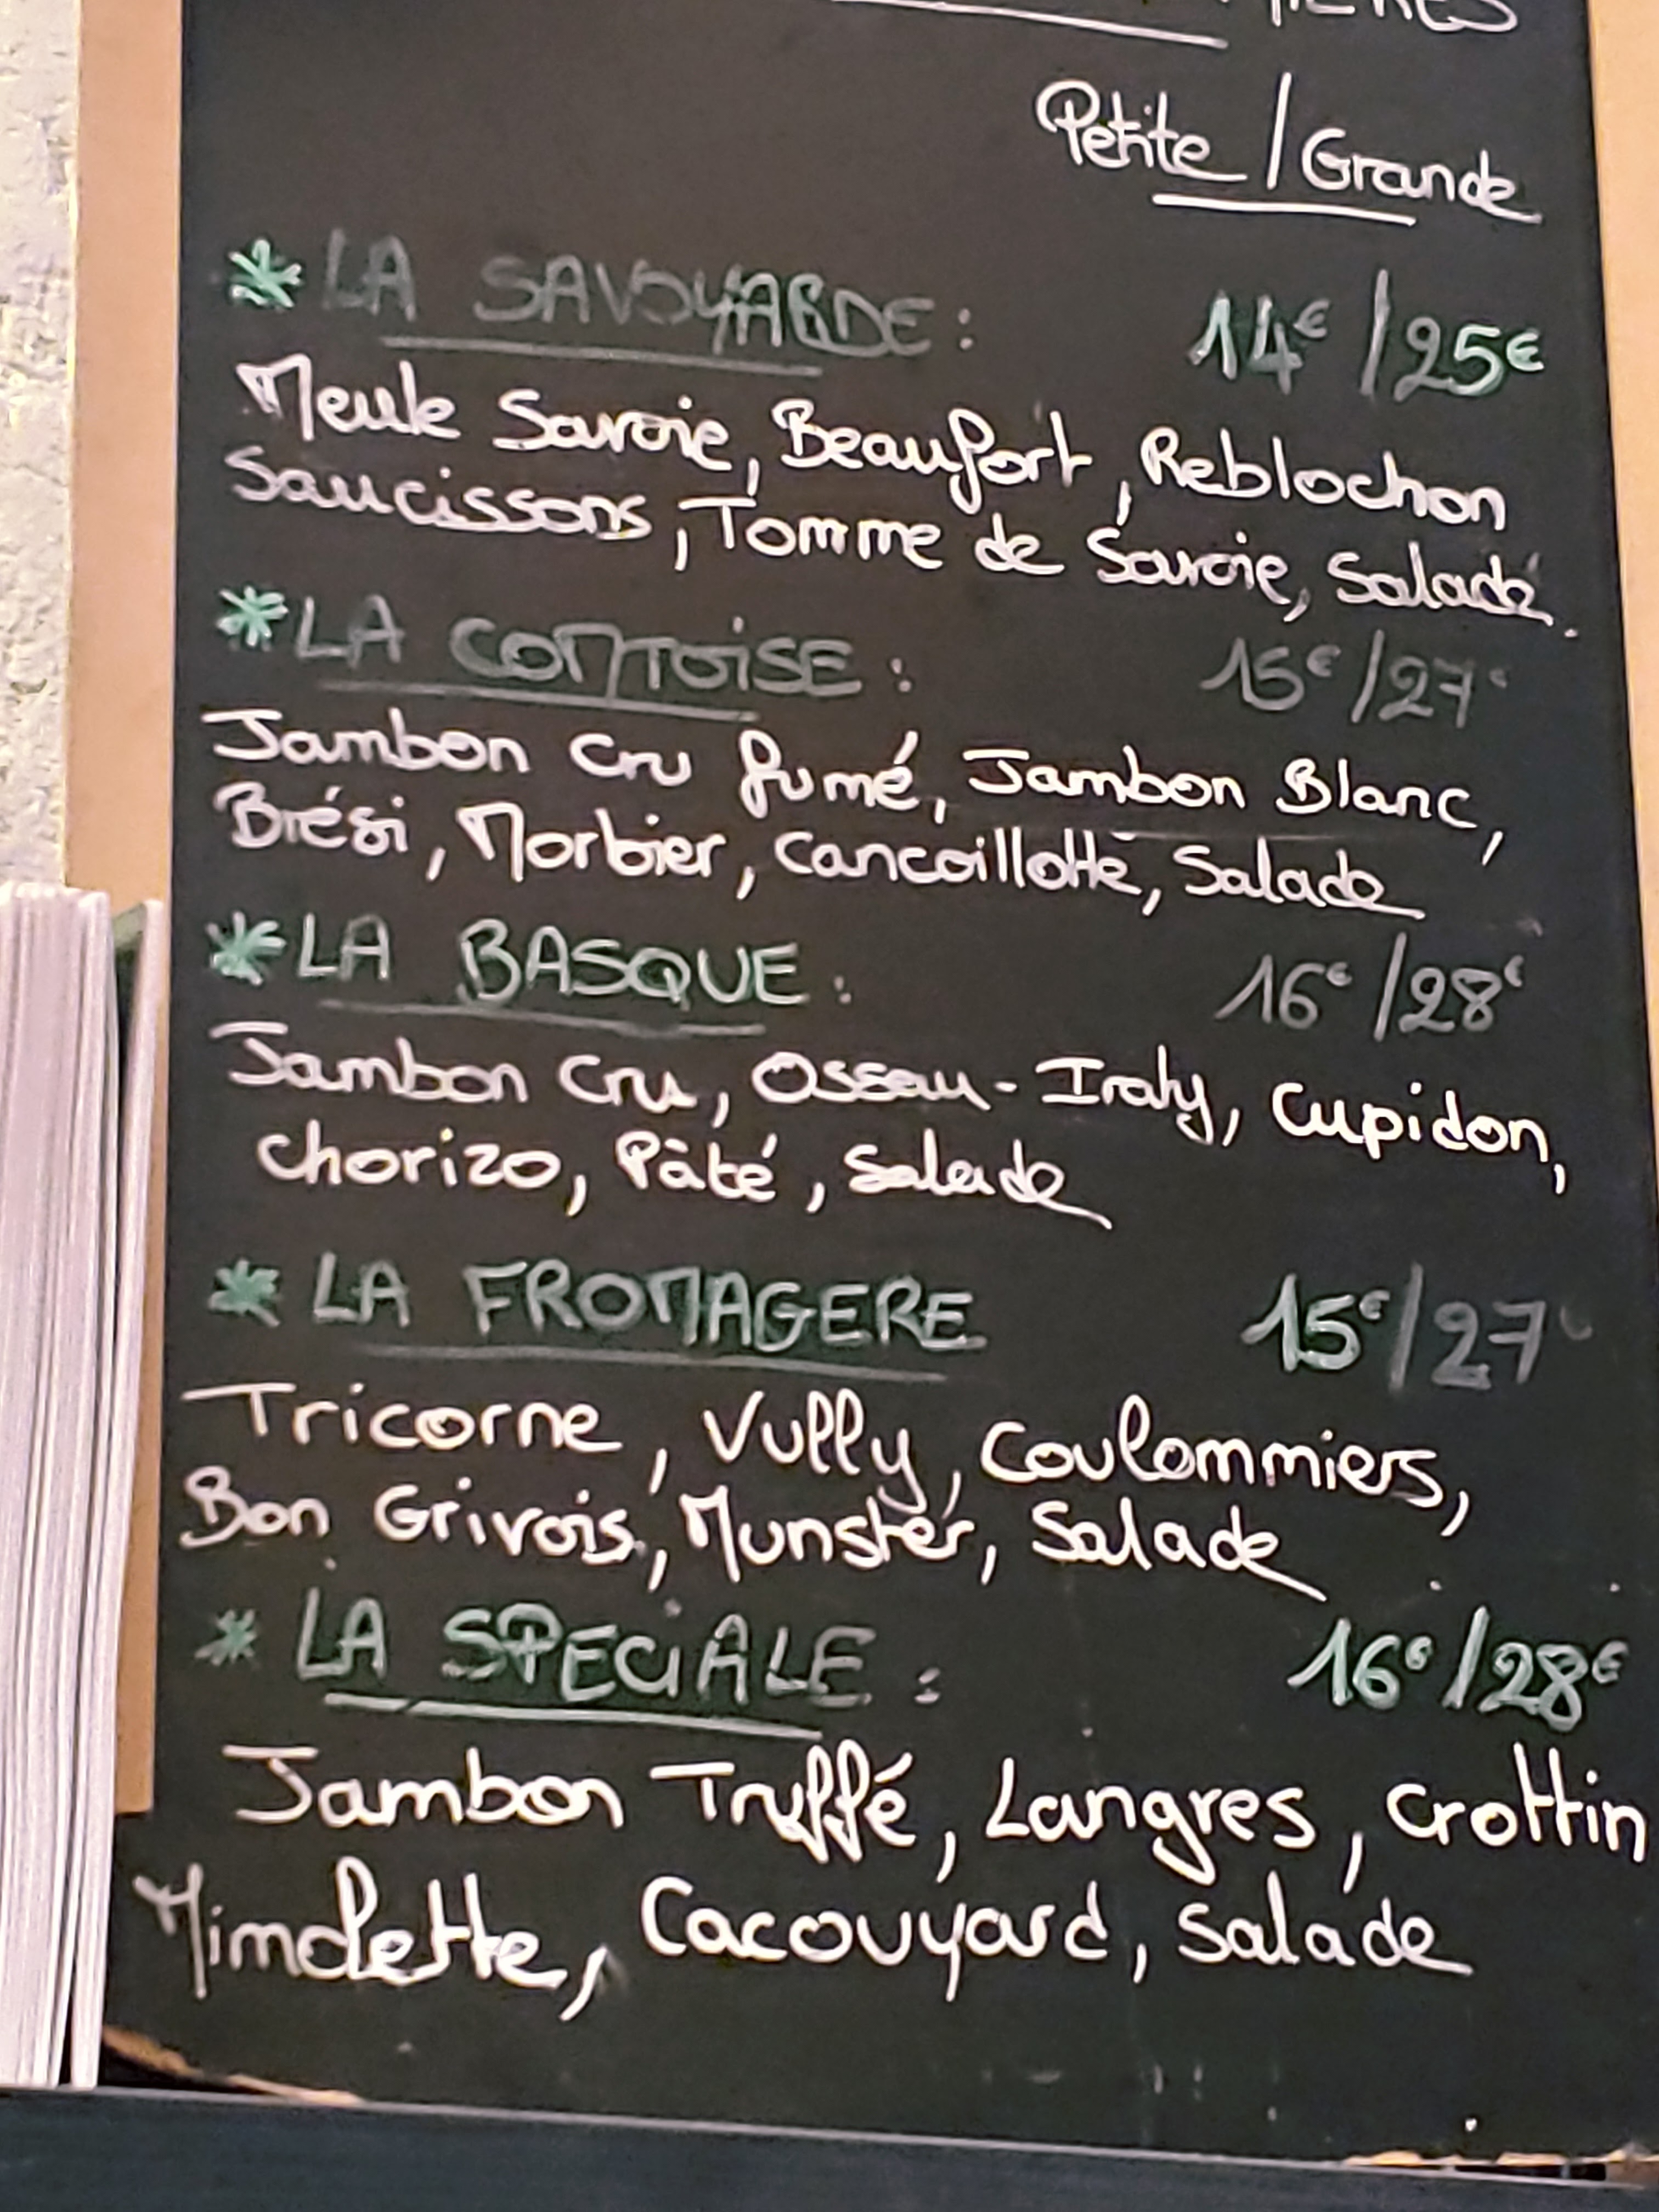 Petite / Grande
* LA SAVOYARDE : 14€ / 25€
Meule Savoie, Beaufort, Reblochon
Saucissons, Tomme de Savoie, Salade.
* LA COMTOISE : 15€ / 27€
Jambon Cru fumé, Jambon Blanc,
Brési, Morbier, Cancoillotte, Salade
* LA BASQUE : 16€ / 28€
Jambon Cru, Ossau-Iraty, Cupidon,
Chorizo, Pâté, Salade
* LA FROMAGERE 15€ / 27€
Tricorne, Vully, Coulommiers,
Bon Grivois, Munster, Salade
* LA SPECIALE : 16€ / 28€
Jambon Truffé, Langres, Crottin
Mimolette, Cacouyard, Salade